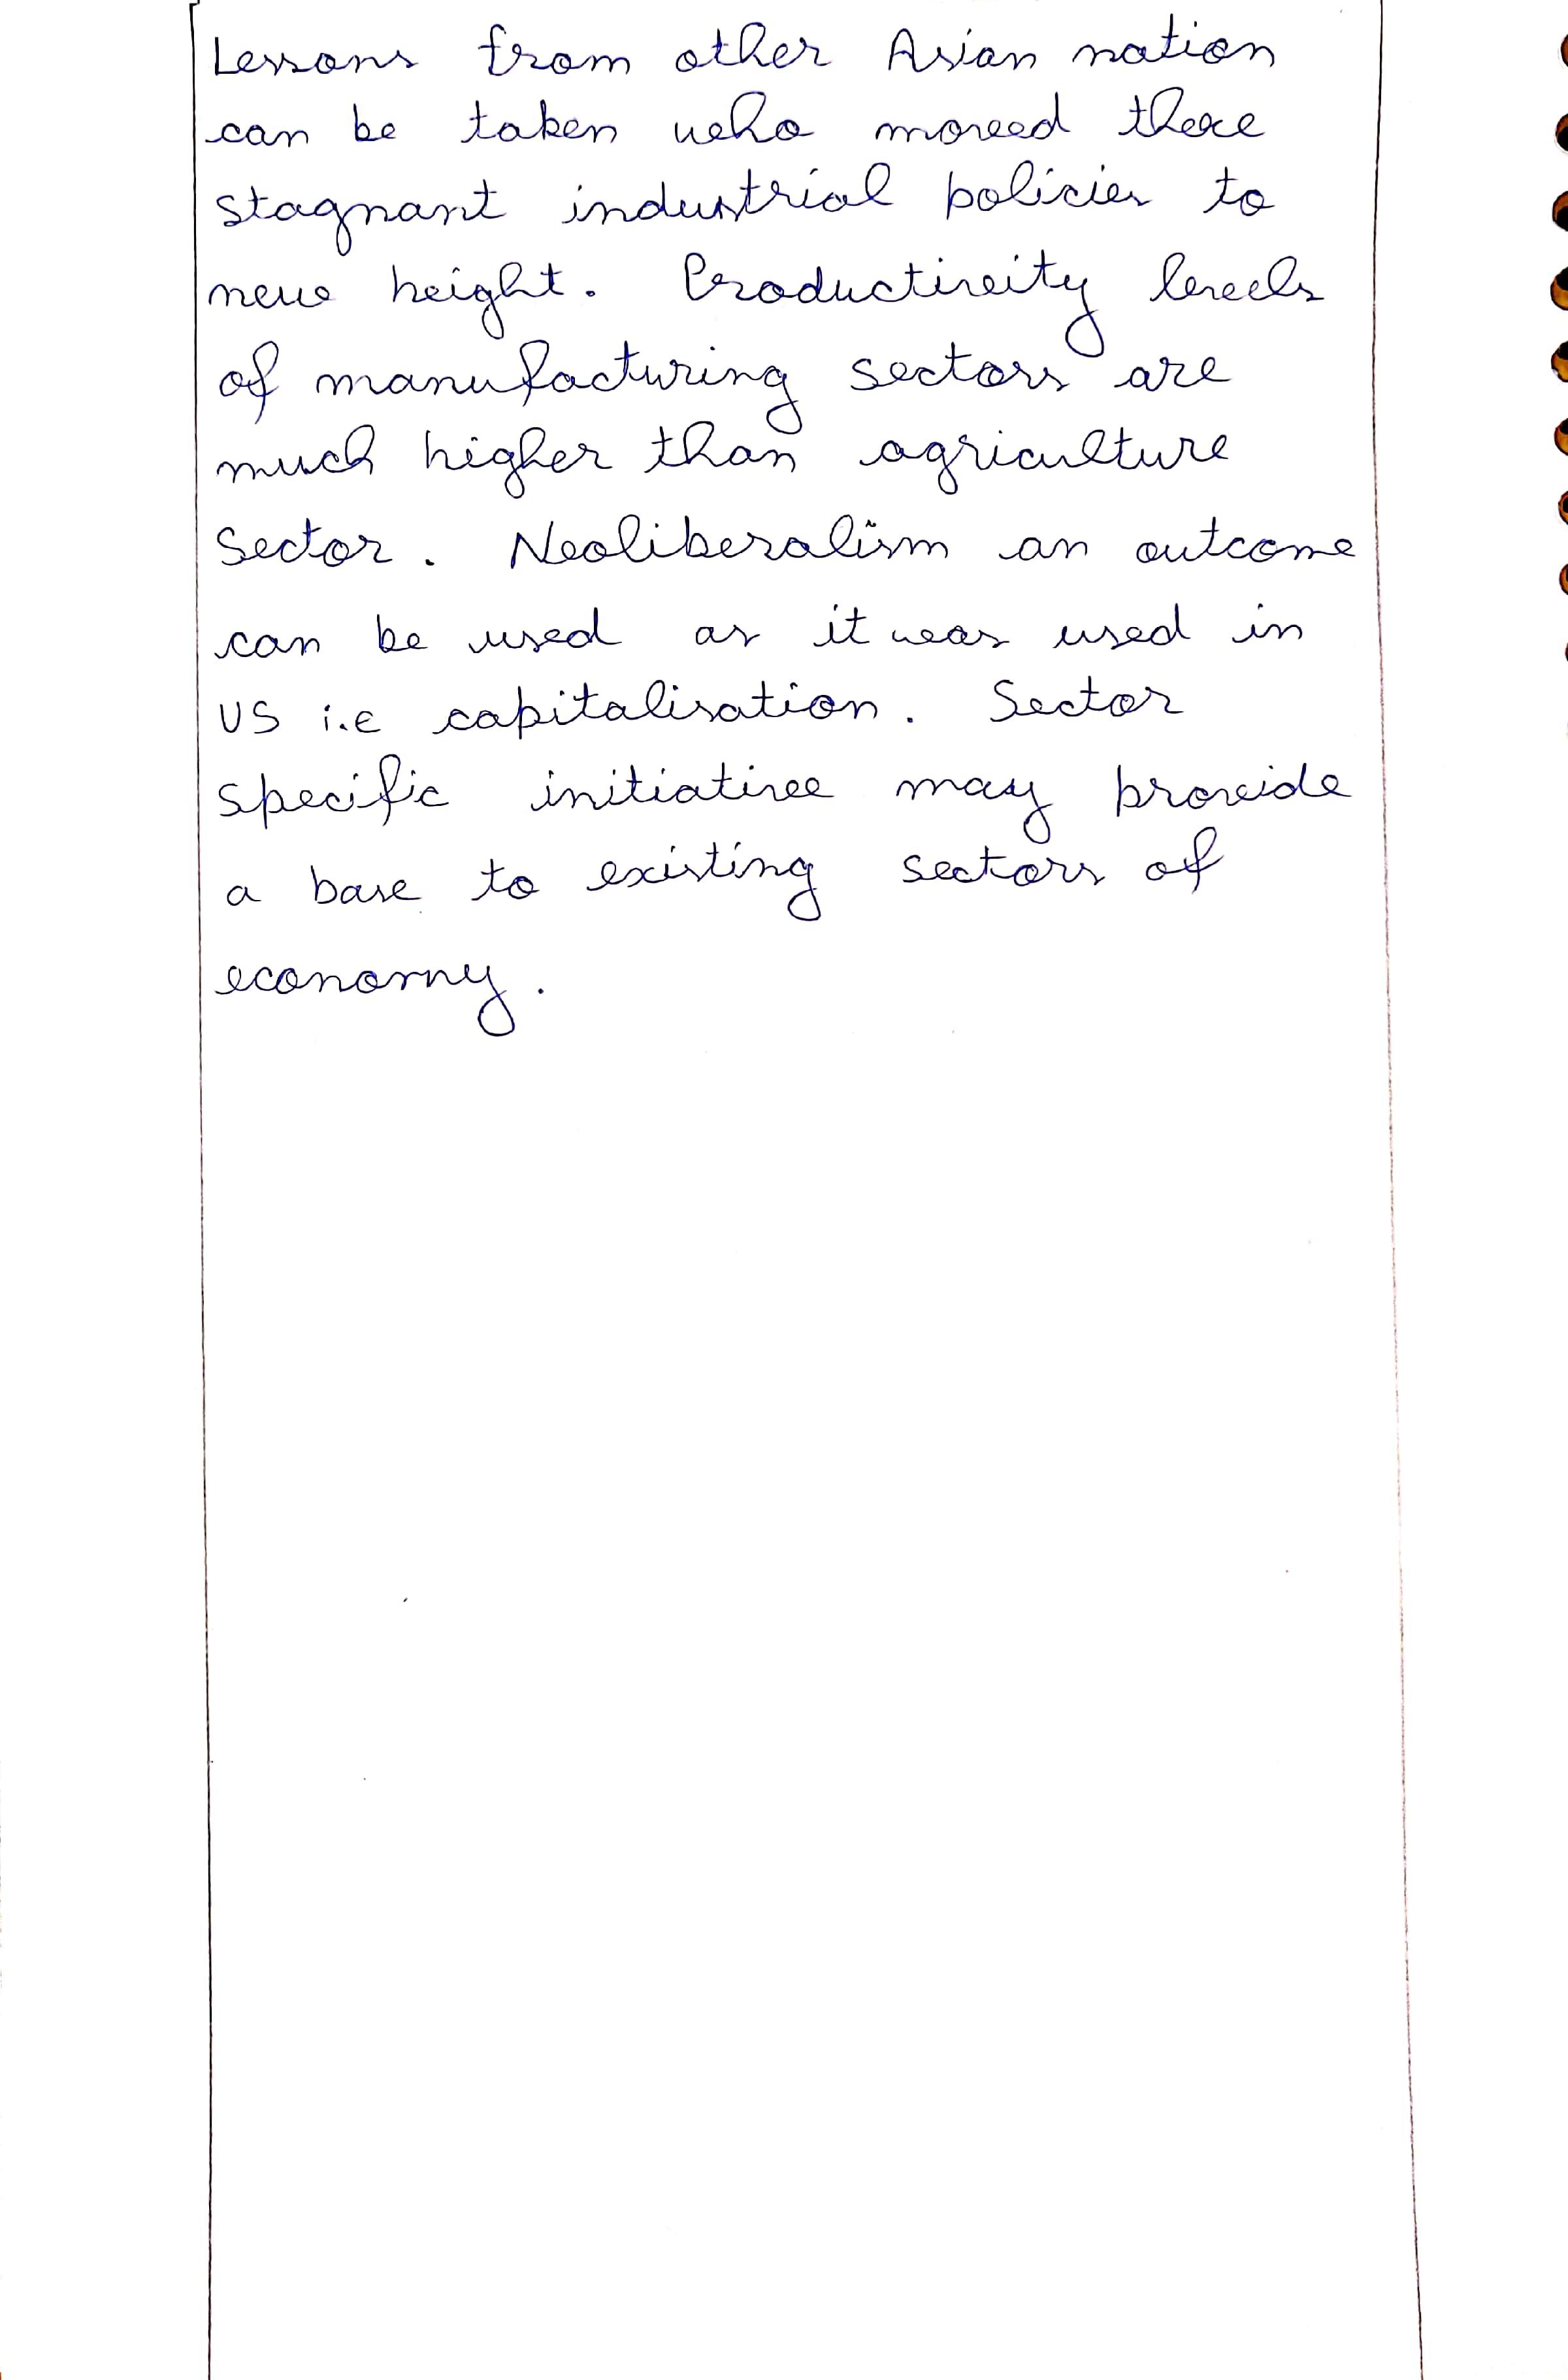 Lessons from other Asian nation
can be taken who moved there
stagnant industrial policies to
new height. Productivity levels
of manufacturing sectors are
much higher than agriculture
Sector. Neoliberalism an outcome
can be used as it was used in
US i.e capitalisation. Sector
specific initiative may provide
a base to existing sectors of
economy.